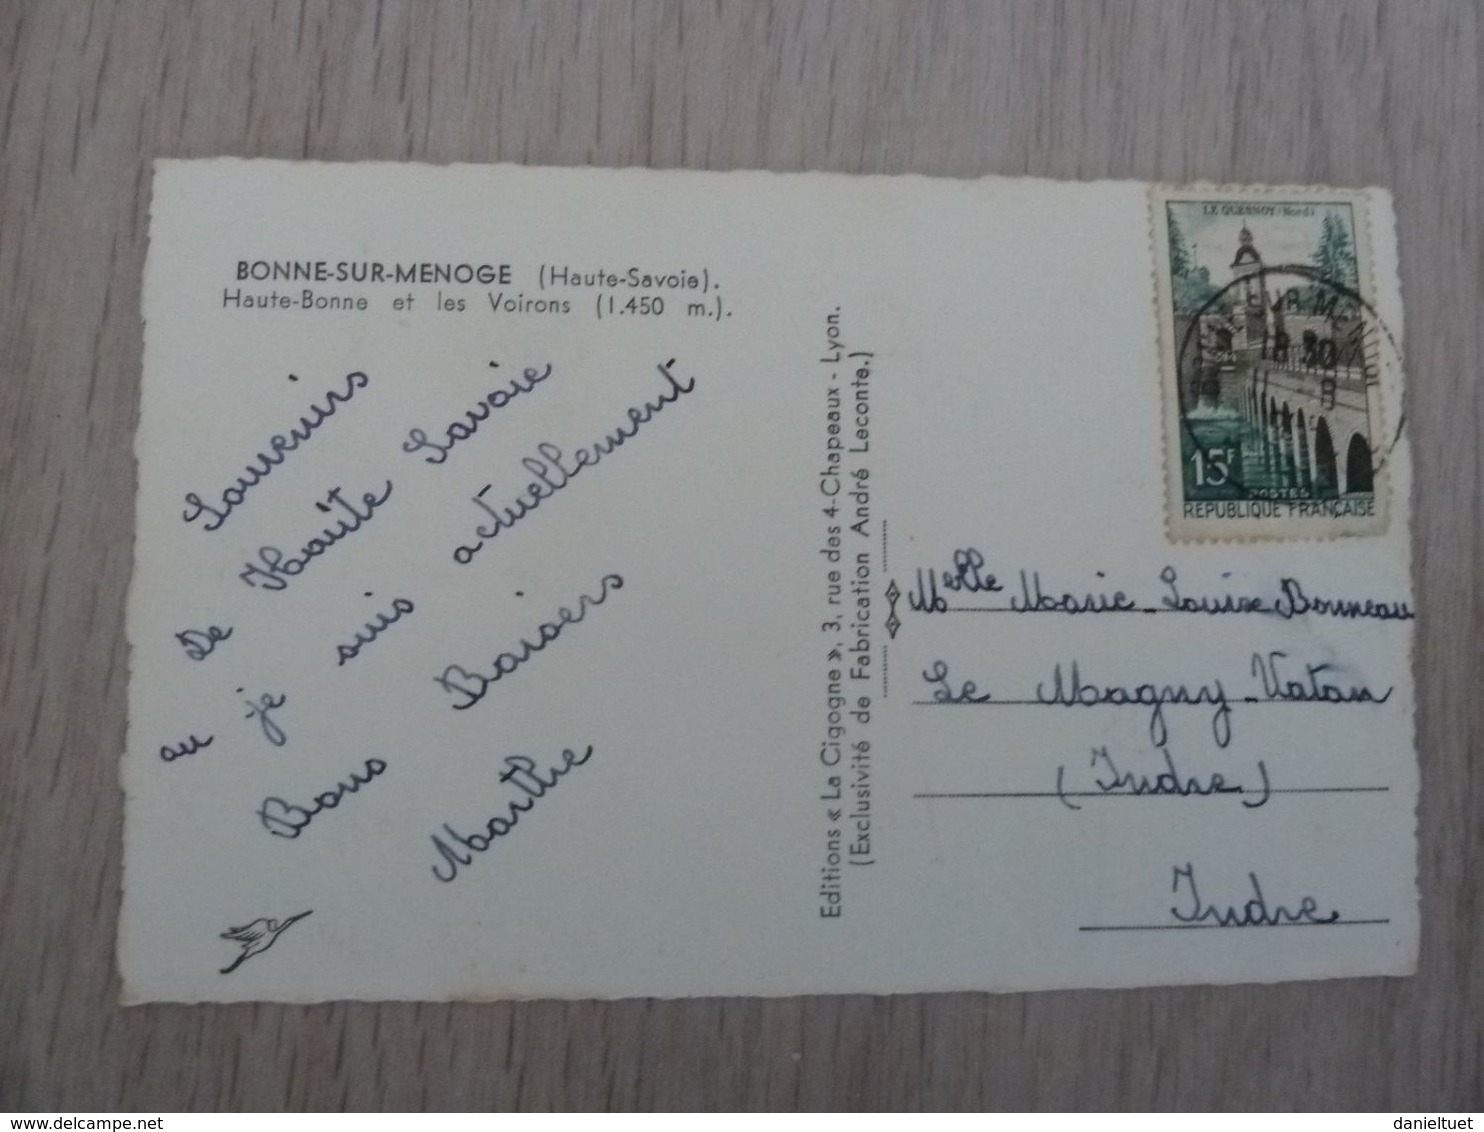 BONNE-SUR-MENOGE (Haute-Savoie).
Haute-Bonne et les Voirons (1.450 m.).
Souvenirs
De Haute Savoie
ou je suis actuellement
Bons Baisers
Marthe
Editions « La Cigogne », 3, rue des 4-Chapeaux - Lyon.
(Exclusivité de Fabrication André Leconte.)
LE QUESNOY (Nord)
SUR MENOGE
18 30
15F
POSTES
REPUBLIQUE FRANÇAISE
Melle Marie-Louise Bonneau
Le Magny-Vatan
(Indre)
Indre
delcampe.net
danieltuet